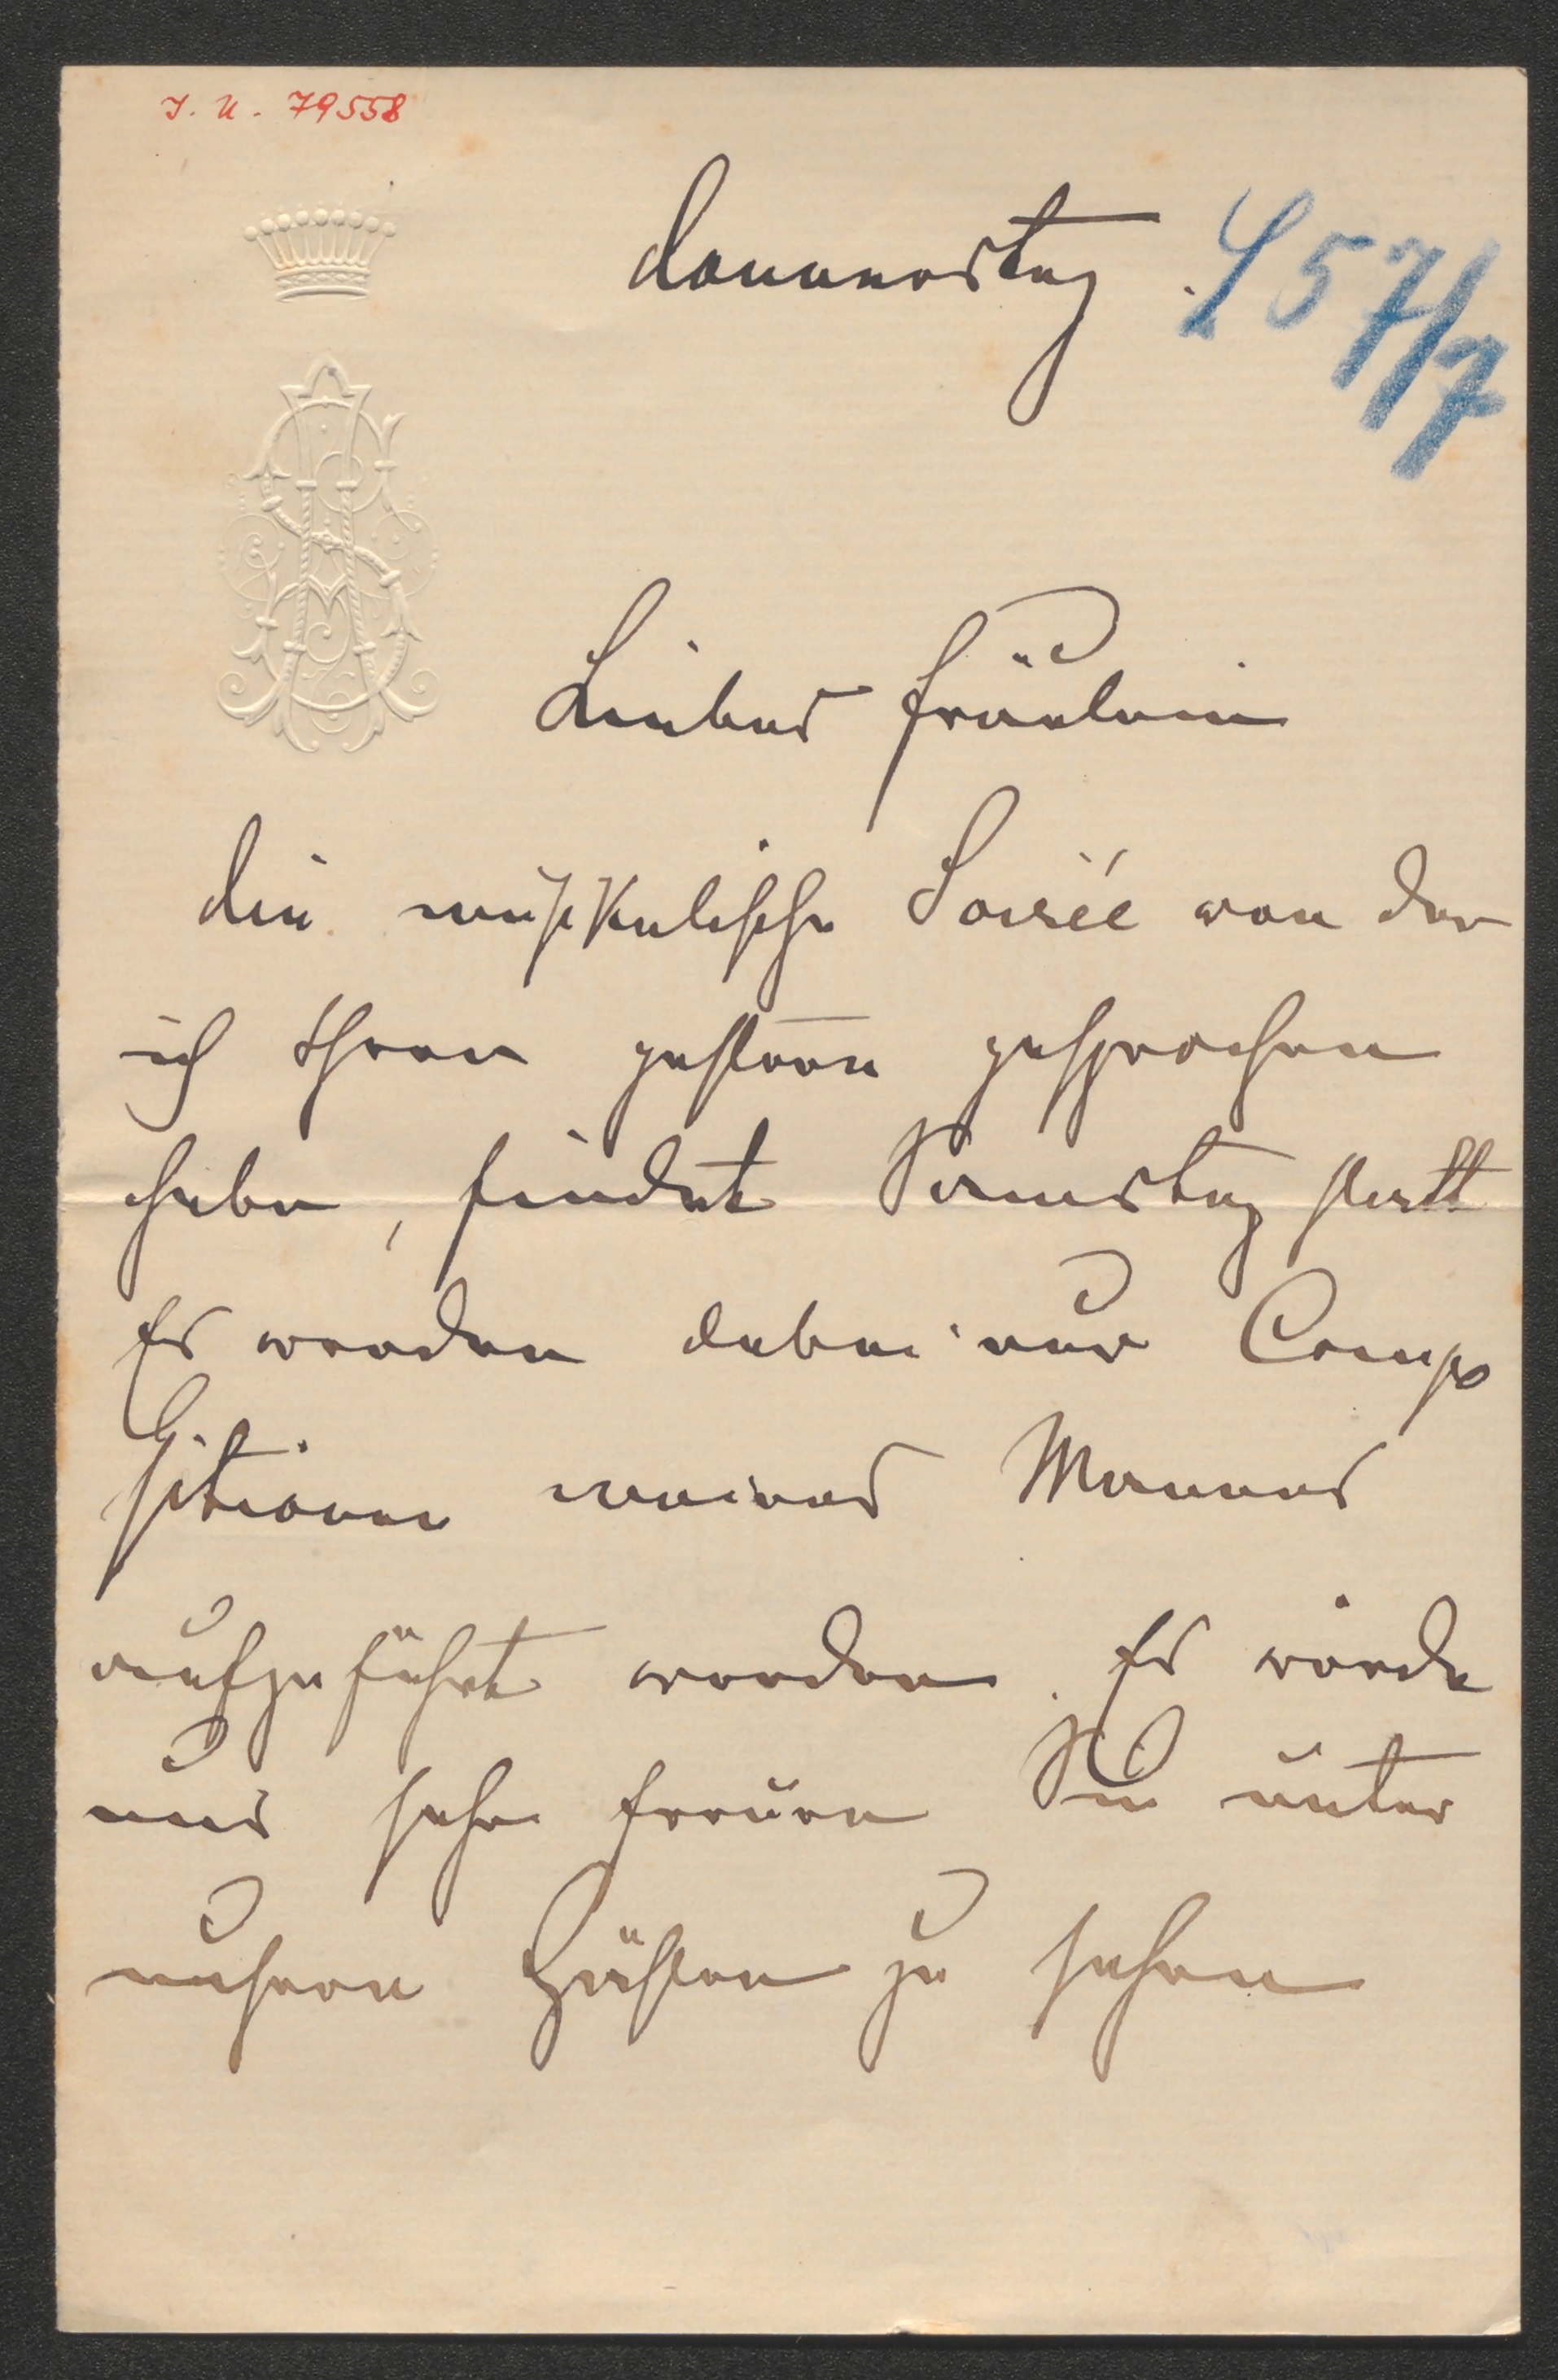 I. N. 79558
Donnerstag
L 57/7
Liebes Fräulein
Die musikalische Soirée von der
ich Ihnen gestern gesprochen
habe, findet Samstag statt
Es werden dabei nur Compo
sitionen meines Mannes
aufgeführt werden. Es würde
uns sehr freuen Sie unter
unsern Gästen zu sehen